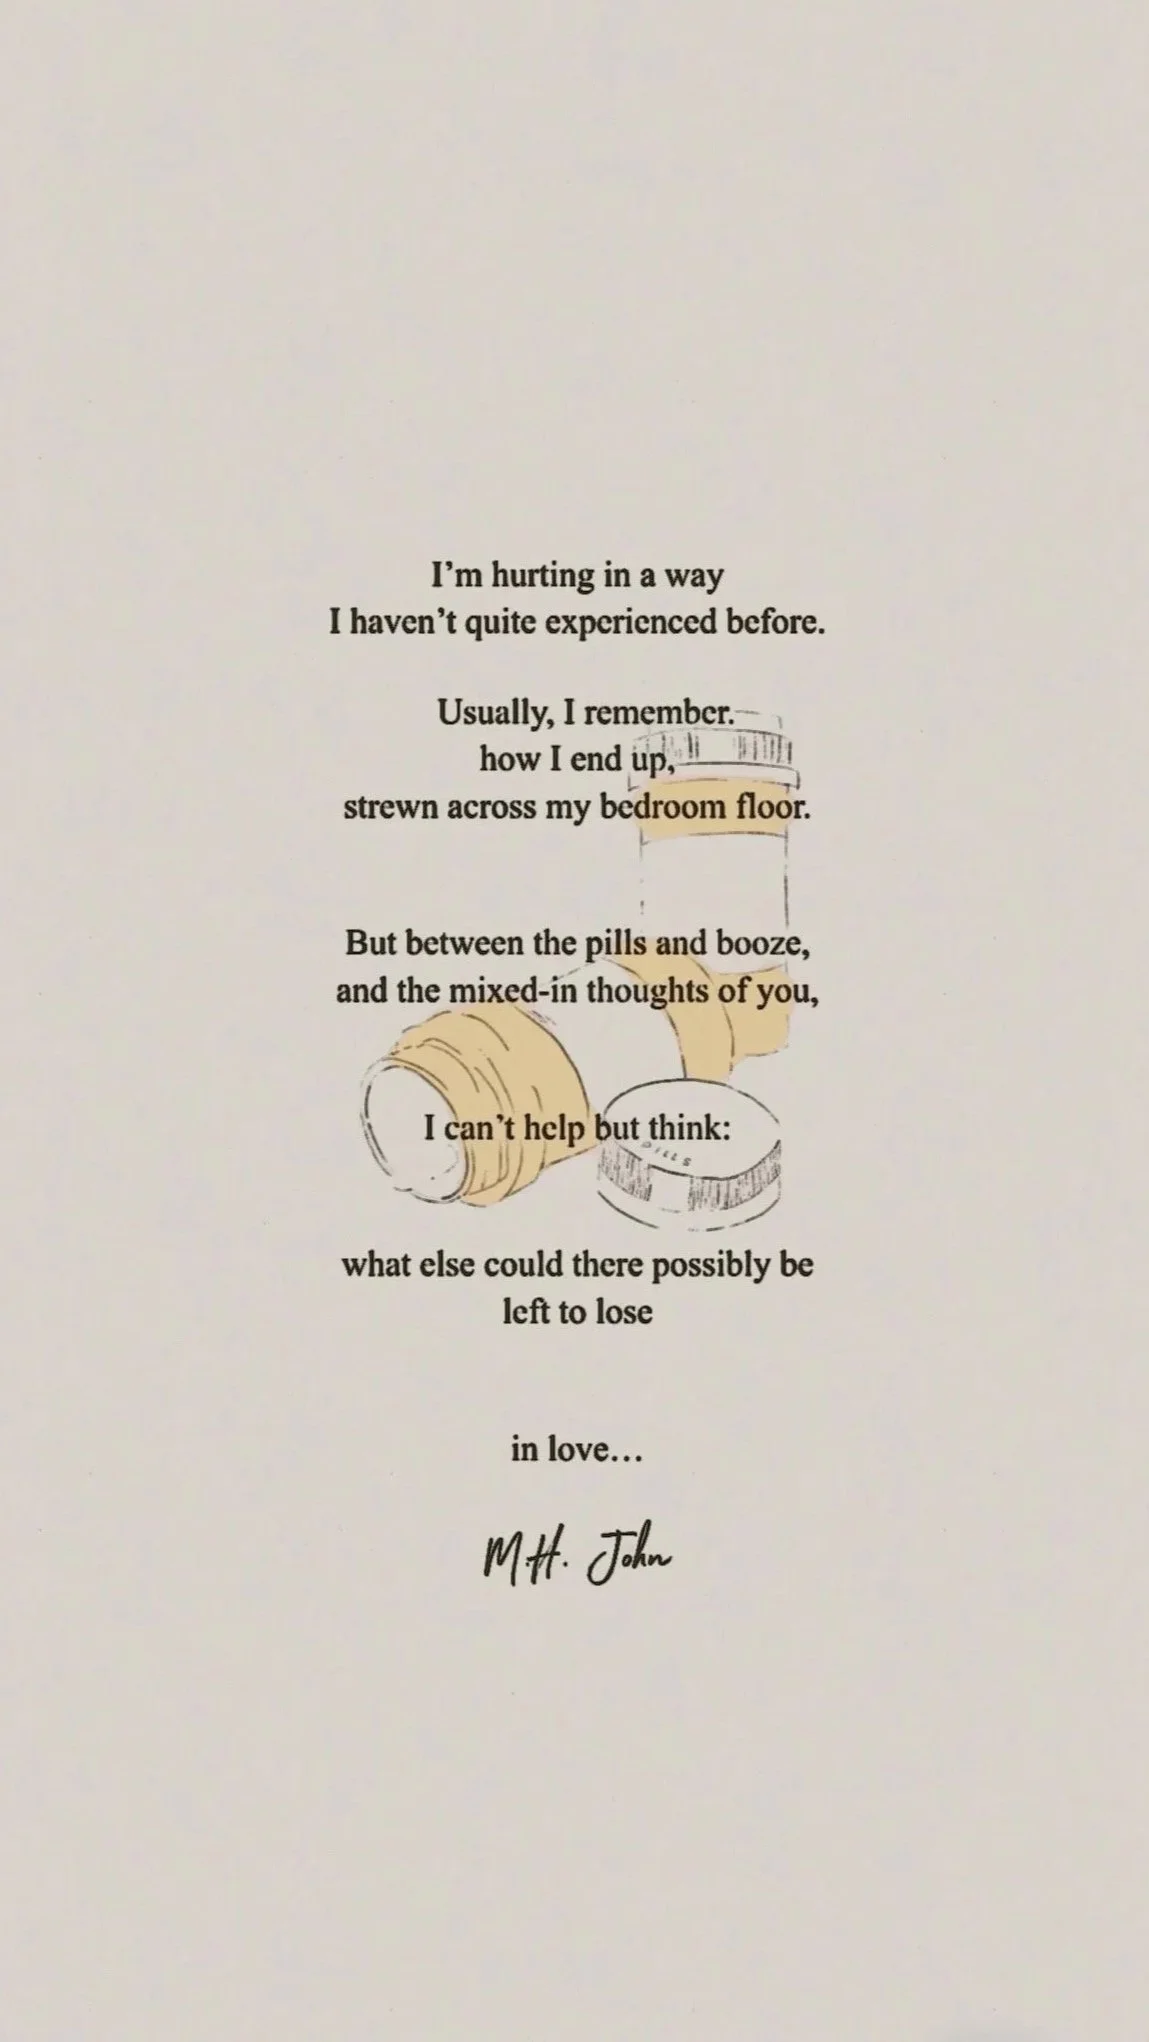 I'm hurting in a way
I haven't quite experienced before.
Usually, I remember.
how I end up,
strewn across my bedroom floor.
But between the pills and booze,
and the mixed-in thoughts of you,
I can't help but think:
PILLS
what else could there possibly be
left to lose
in love...
M.H. John